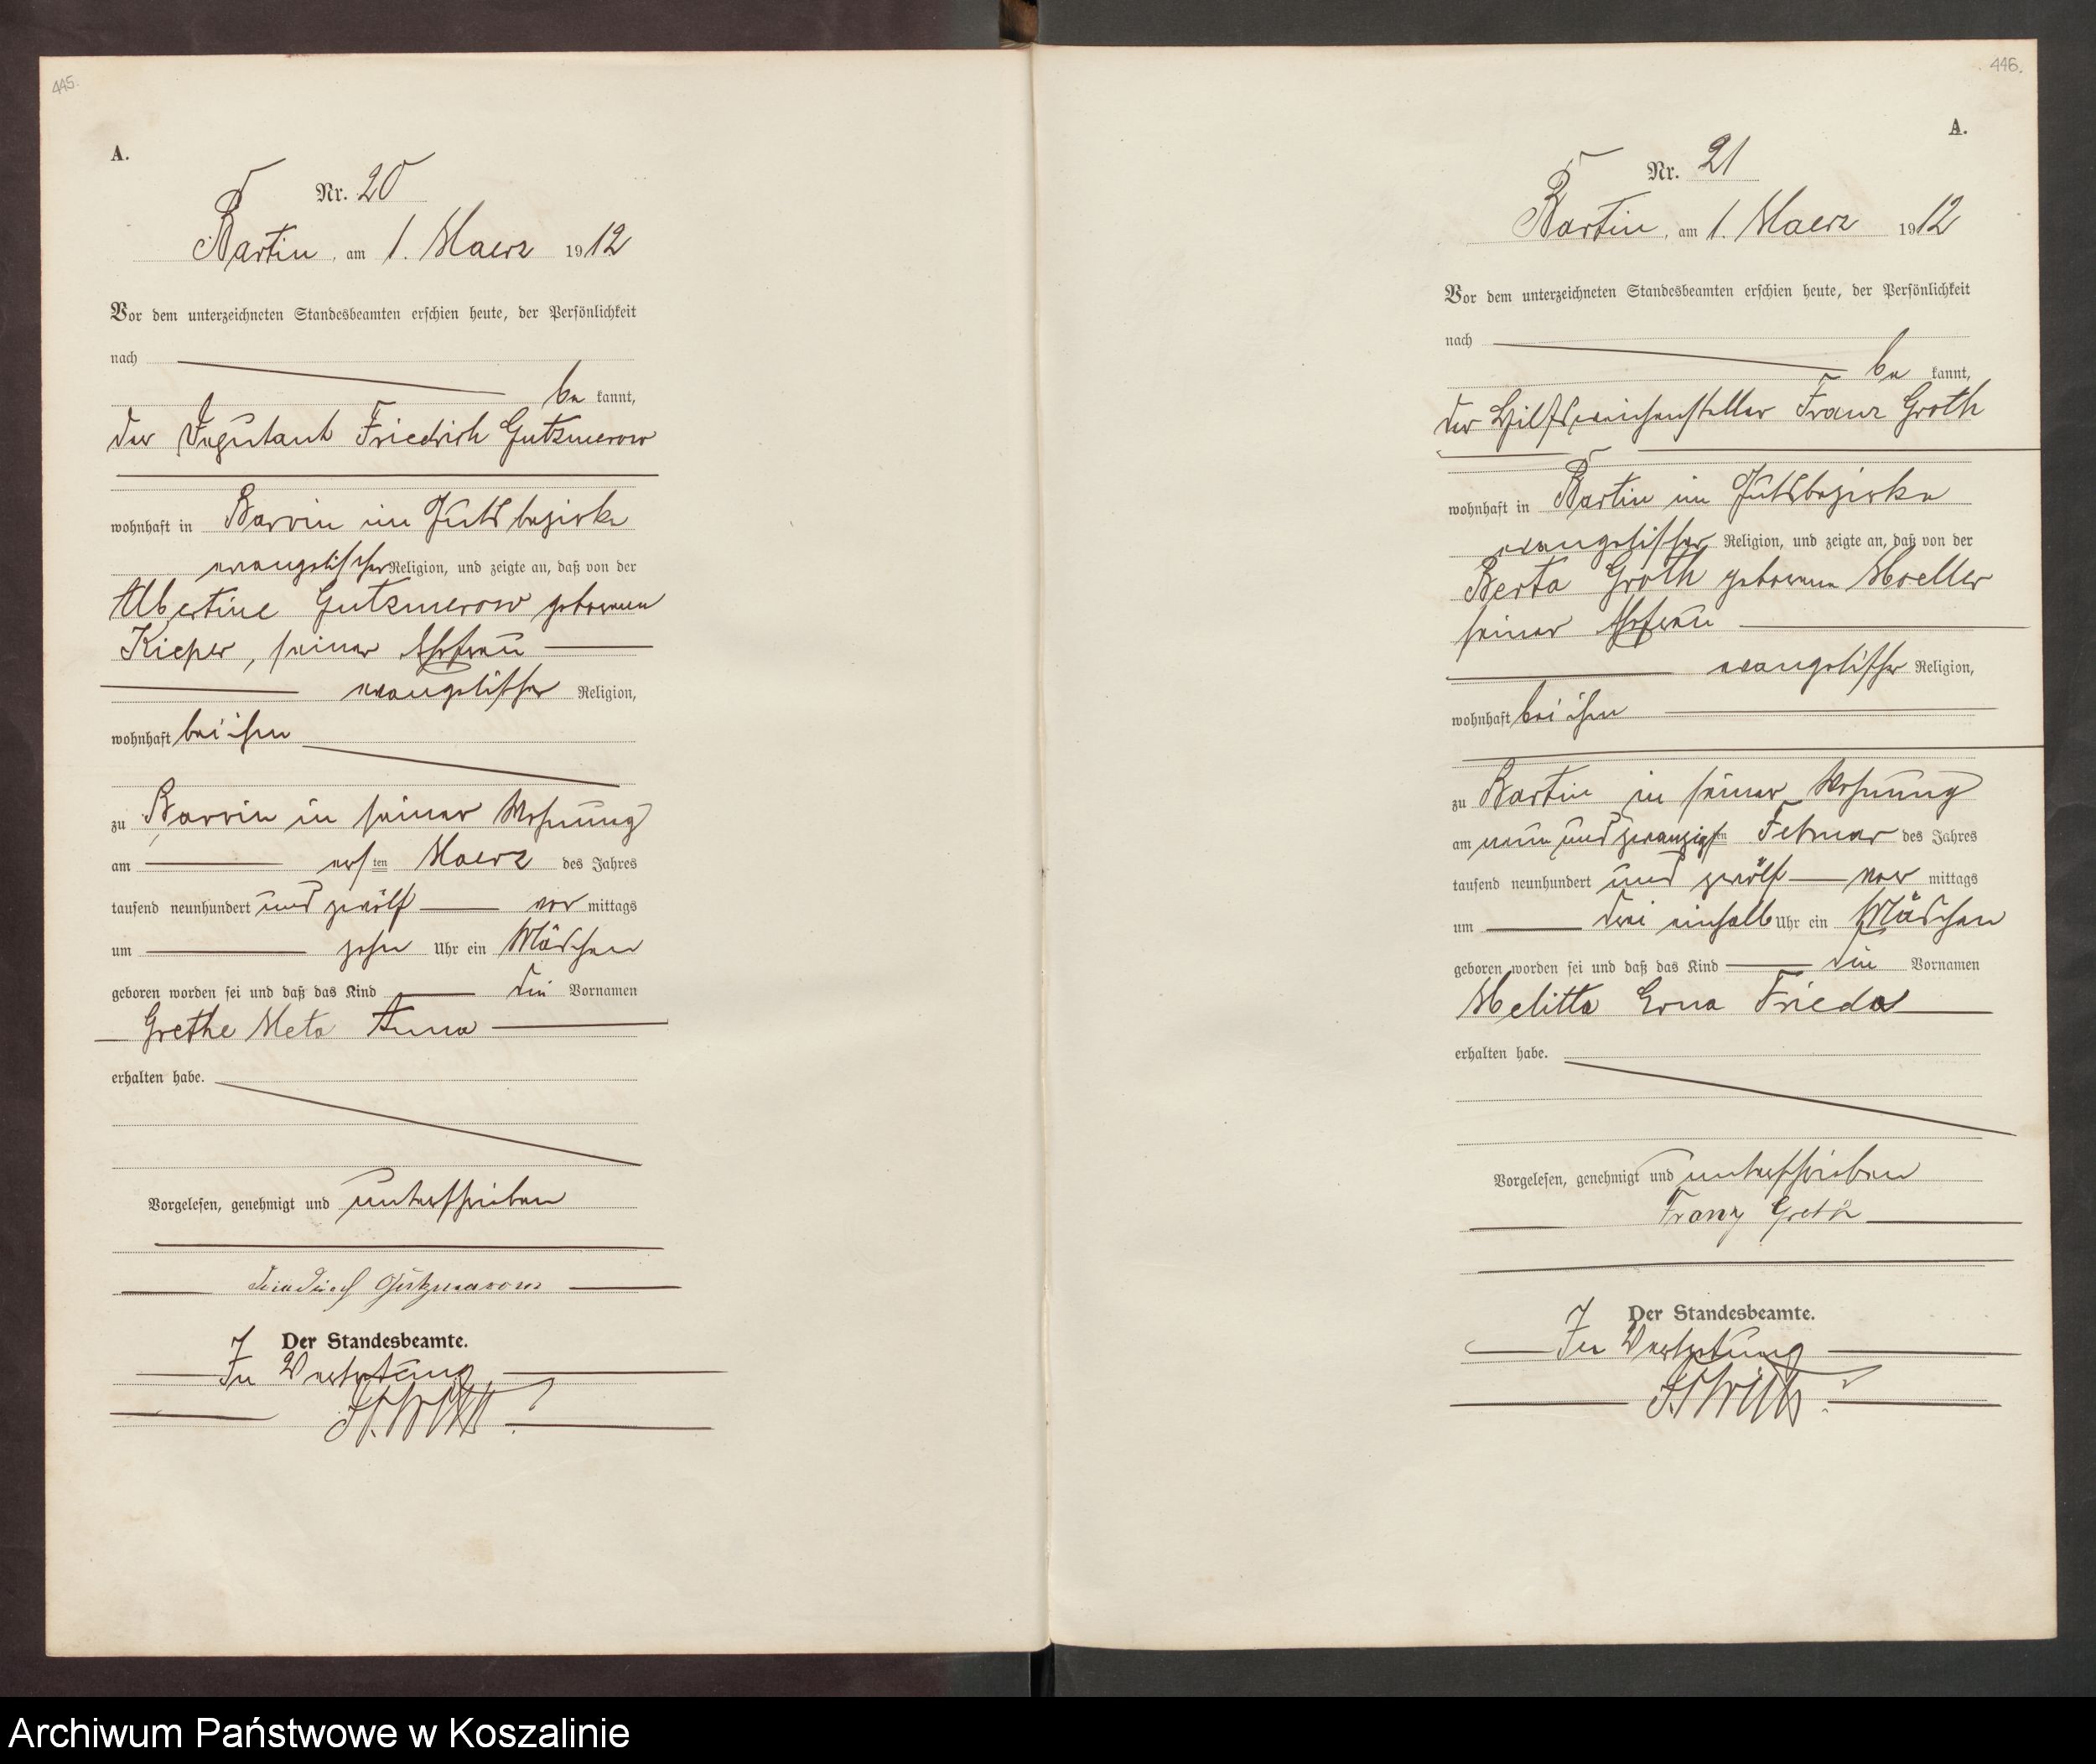 445.
A.
Nr. 20
Bartin, am 1. Maerz 1912
Vor dem unterzeichneten Standesbeamten erschien heute, der Persönlichkeit
nach
be kannt,
der Deputant Friedrich Gutzmerow
wohnhaft in Barvin im Gutsbezirke
evangelischer Religion, und zeigte an, daß von der
Albertine Gutzmerow geborenen
Kieper, seiner Ehefrau
evangelischer Religion,
wohnhaft bei ihm
zu Barvin in seiner Wohnung
am ersten Maerz des Jahres
tausend neunhundert und zwölf vor mittags
um zehn Uhr ein Mädchen
geboren worden sei und daß das Kind die Vornamen
Grethe Meta Anna
erhalten habe.
Vorgelesen, genehmigt und unterschrieben
Friedrich Gutzmerow
Der Standesbeamte.
In Vertretung
446.
A.
Nr. 21
Bartin, am 1. Maerz 1912
Vor dem unterzeichneten Standesbeamten erschien heute, der Persönlichkeit
nach
be kannt,
der Hilfsweichensteller Franz Groth
wohnhaft in Bartin im Gutsbezirke
evangelischer Religion, und zeigte an, daß von der
Berta Groth geborenen Moeller
seiner Ehefrau
evangelischer Religion,
wohnhaft bei ihm
zu Bartin in seiner Wohnung
am neun und zwanzigsten Februar des Jahres
tausend neunhundert und zwölf vor mittags
um drei einhalb Uhr ein Mädchen
geboren worden sei und daß das Kind die Vornamen
Melitta Erna Frieda
erhalten habe.
Vorgelesen, genehmigt und unterschrieben
Franz Groth
Der Standesbeamte.
In Vertretung
Archiwum Państwowe w Koszalinie